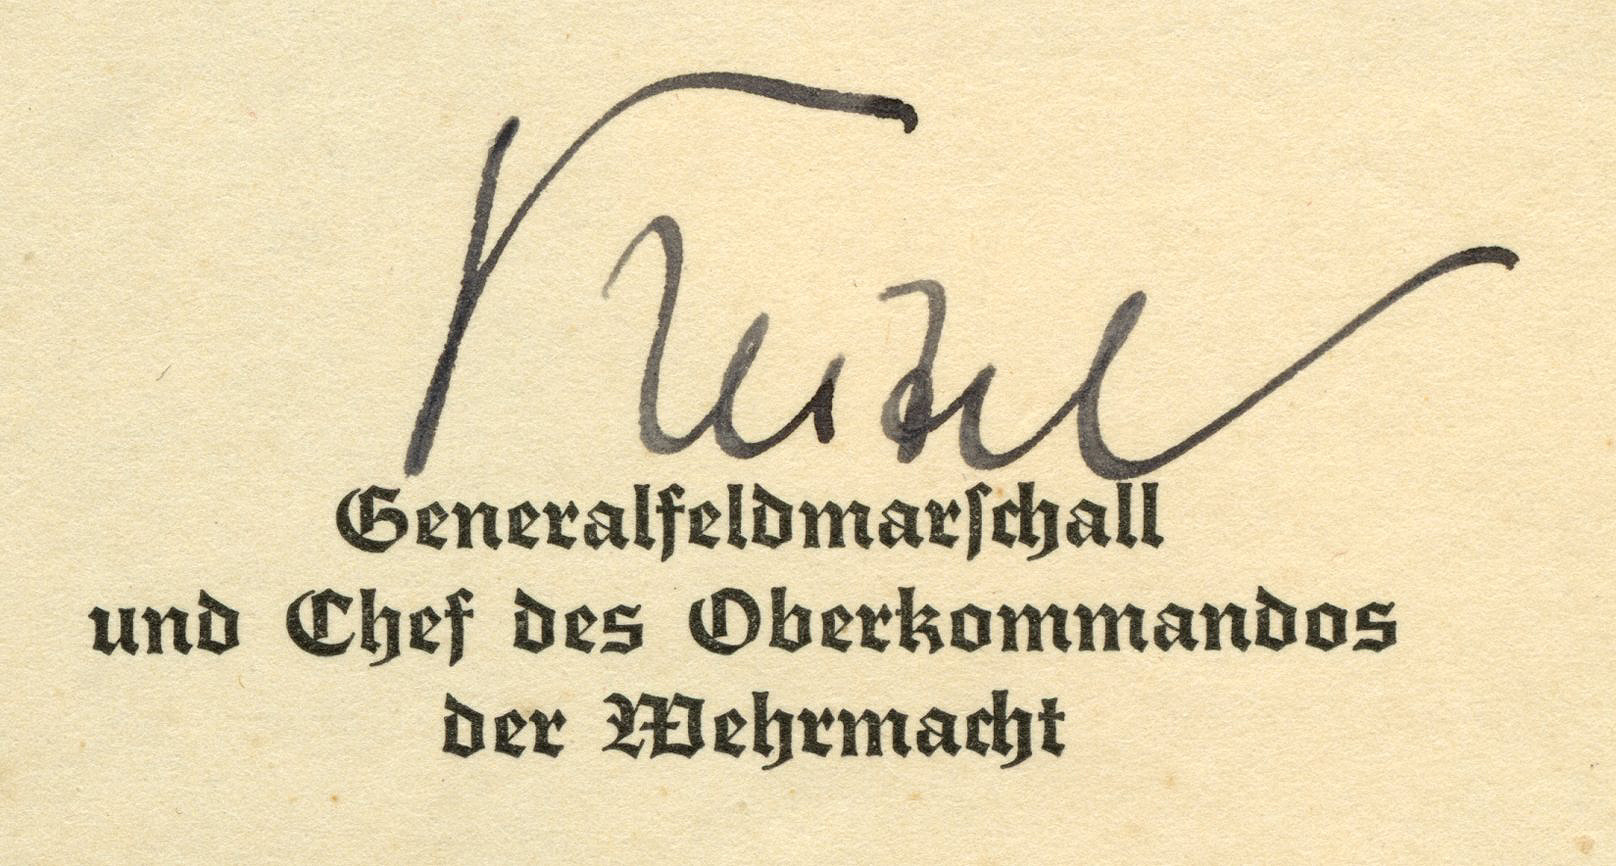 Keitel
Generalfeldmarschall
und Chef des Oberkommandos
der Wehrmacht